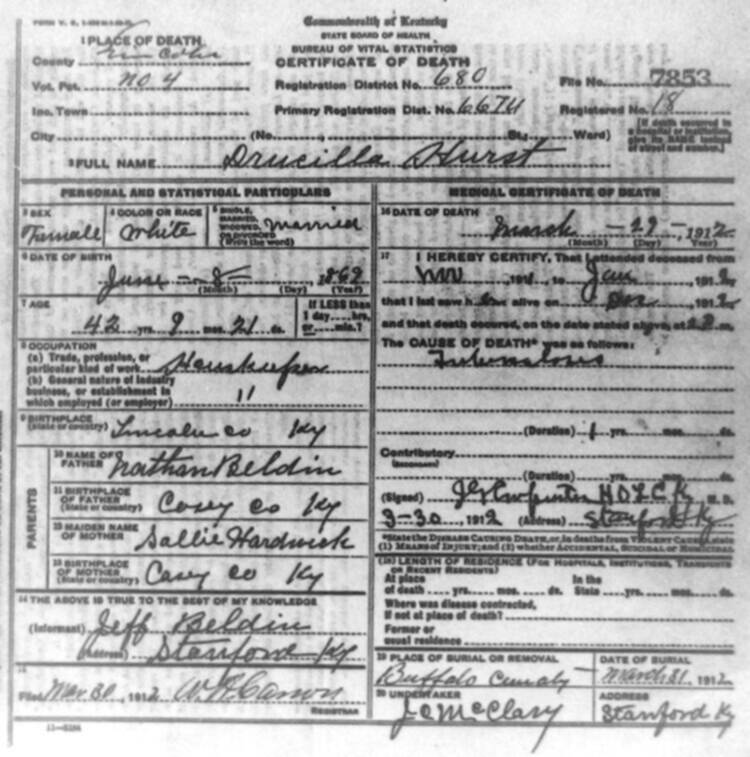 Commonwealth of Kentucky
STATE BOARD OF HEALTH
BUREAU OF VITAL STATISTICS
CERTIFICATE OF DEATH
1 PLACE OF DEATH
County Lincoln
Vot. Pct. No 4
Registration District No. 680
File No. 7853
Inc. Town
Primary Registration Dist. No. 6674
Registered No. 18
City (No. St.; Ward)
[If death occurred in a hospital or institution, give its NAME instead of street and number.]
2 FULL NAME Drucilla Hurst
PERSONAL AND STATISTICAL PARTICULARS
3 SEX Femall
4 COLOR OR RACE White
5 SINGLE, MARRIED, WIDOWED, OR DIVORCED (Write the word) Married
6 DATE OF BIRTH
June - 8 - 1869
(Month) (Day) (Year)
7 AGE
42 yrs. 9 mos. 21 ds.
If LESS than 1 day....hrs. or....min.?
8 OCCUPATION
(a) Trade, profession, or particular kind of work Houskeeper
(b) General nature of industry business, or establishment in which employed (or employer) "
9 BIRTHPLACE (State or country) Lincoln co Ky
PARENTS
10 NAME OF FATHER Nathan Beldin
11 BIRTHPLACE OF FATHER (State or country) Casey co Ky
12 MAIDEN NAME OF MOTHER Sallie Hardwick
13 BIRTHPLACE OF MOTHER (State or country) Casey co Ky
14 THE ABOVE IS TRUE TO THE BEST OF MY KNOWLEDGE
(Informant) Jeff Beldin
(Address) Stanford Ky
15
Filed Mar 30, 1912
REGISTRAR
MEDICAL CERTIFICATE OF DEATH
16 DATE OF DEATH
March - 29 - 1912
(Month) (Day) (Year)
17 I HEREBY CERTIFY, That I attended deceased from
Nov 191 , to Jan 1912
that I last saw h alive on 1912
and that death occurred, on the date stated above, at m.
The CAUSE OF DEATH* was as follows:
Tuberculosis
(Duration) 1 yrs. mos. ds.
Contributory
(SECONDARY)
(Duration) yrs. mos. ds.
(Signed) Carpenter H O L C Ky M. D.
3-30, 1912 (Address) Stanford Ky
*State the DISEASE CAUSING DEATH, or, in deaths from VIOLENT CAUSES, state
(1) MEANS OF INJURY; and (2) whether ACCIDENTAL, SUICIDAL or HOMICIDAL
18 LENGTH OF RESIDENCE (FOR HOSPITALS, INSTITUTIONS, TRANSIENTS OR RECENT RESIDENTS)
At place of death yrs. mos. ds. In the State yrs. mos. ds.
Where was disease contracted, if not at place of death?
Former or usual residence
19 PLACE OF BURIAL OR REMOVAL
Buffalo
DATE OF BURIAL
March 31, 1912
20 UNDERTAKER
J C McClary
ADDRESS
Stanford Ky